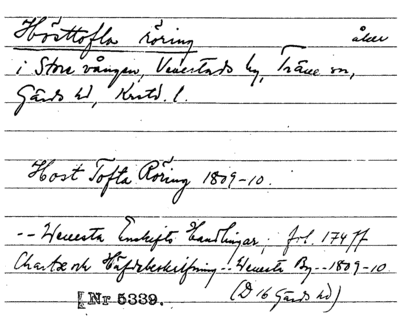 Hösttofta röring åker
i Stora vången, Venestads by, Träne sn,
Gärds hd, Krstd. l.
Host Tofta Röring 1809-10.
-- Wenesta Enskifts Handlingar, fol. 174 ff
Charta och Häfdebeskrifning -- Wenesta By -- 1809-10
Nr 5339. (D 16 Gärds hd)